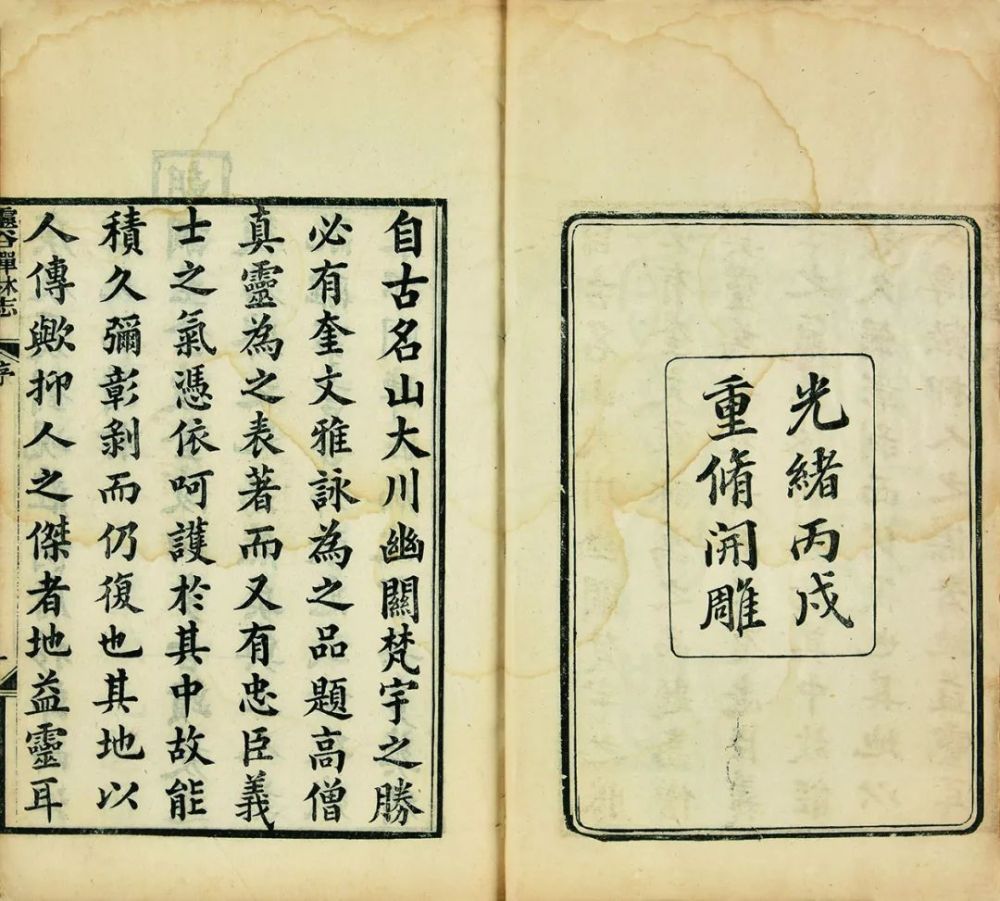 光緒丙戌
重脩開雕
自古名山大川幽關梵宇之勝
必有奎文雅詠為之品題高僧
真靈為之表著而又有忠臣義
士之氣憑依呵護於其中故能
積久彌彰剝而仍復也其地以
人傳歟抑人之傑者地益靈耳
靈谷禪林志
序
一